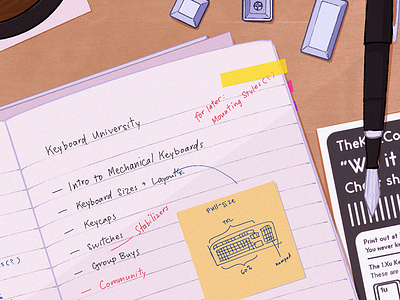 for later:
Mounting Styles (?)
Keyboard University
— Intro to Mechanical Keyboards
— Keyboard Sizes + Layouts
— Keycaps
— Switches
Stabilizers
— Group Buys
— Community
Full-Size
TKL
60%
numpad
TheK
Co
"W
it
Ch
sh
Print out at
You never kn
The I.Xu Ke
These are
1u